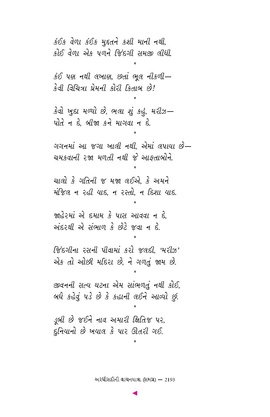 કંઈક વેળા કંઈક મુદ્દતને કશી માની નથી,
કોઈ વેળા એક પળને જિંદગી સમજી લીધી.
*
કંઈ પણ નથી લખાણ, છતાં ભૂલ નીકળી—
કેવી વિચિત્ર પ્રેમની કોરી કિતાબ છે!
*
કેવો ખુદા મળ્યો છે, ભલા શું કહું, મરીઝ—
પોતે ન દે, બીજા કને માગવા ન દે.
*
ગગનમાં આ જગા ખાલી નથી, એમાં લપાવા છે—
ચમકવાની રજા મળતી નથી જે આફતાબોને.
*
ચાલો કે ગતિની જ મજા લઈએ, કે અમને
મંજિલ ન રહી યાદ, ન રસ્તો, ન દિશા યાદ.
*
જાહેરમાં એ દમામ કે પાસ આવવા ન દે,
અંદરથી એ સંભાળ કે છેટે જવા ન દે.
*
જિંદગીના રસને પીવામાં કરો જલદી, 'મરીઝ'
એક તો ઓછી મદિરા છે, ને ગળતું જામ છે.
*
જીવનની સત્ય ઘટના એમ સાંભળતું નથી કોઈ,
બધે કહેવું પડે છે કે કહાની લઈને આવ્યો છું.
*
ડૂબી છે જઈને નાવ અમારી ક્ષિતિજ પર,
દુનિયાનો છે ખયાલ કે પાર ઊતરી ગઈ.
*
અરધીસદીની વાચનયાત્રા (ભાગ) — 2193